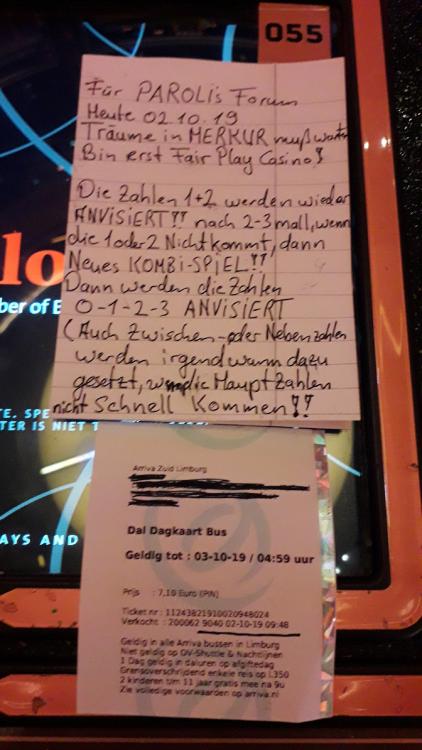 055
Für PAROLIs Forum
Heute 02.10.19
Träume in MERKUR muß warten
Bin erst Fair Play Casino!
Die Zahlen 1+2 werden wieder
ANViSiERT!! nach 2-3 mall, wenn
die 1 oder 2 Nicht kommt, dann
Neues KOMBi-SPiEL!!
Dann werden die Zahlen
0-1-2-3 ANViSiERT
(Auch Zwischen- oder Nebenzahlen
werden irgendwann dazu
gesetzt, wenn die Hauptzahlen
nicht Schnell Kommen!!
lo
ber of B
TE. SPE
TER IS NIET T
AYS AND
Arriva Zuid Limburg
Dal Dagkaart Bus
Geldig tot : 03-10-19 / 04:59 uur
Prijs : 7,10 Euro (PIN)
Ticket nr : 11243821910020948024
Verkocht : 200062 9040 02-10-19 09:48
Geldig in alle Arriva bussen in Limburg
Niet geldig op OV-Shuttle & Nachtlijnen
1 Dag geldig in daluren op afgiftedag
Grensoverschrijdend enkele reis op l.350
2 kinderen t/m 11 jaar gratis mee na 9u
Zie volledige voorwaarden op arriva.nl